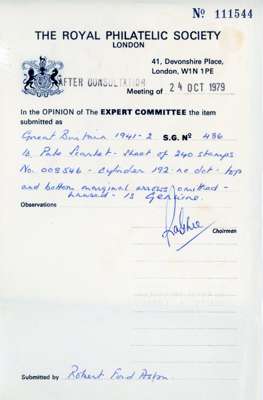 Nº 111544
THE ROYAL PHILATELIC SOCIETY
LONDON
41, Devonshire Place,
London, W1N 1PE
AFTER CONSULTATION
Meeting of 24 OCT 1979
In the OPINION of The EXPERT COMMITTEE the item
submitted as
Great Britain 1941-2 S.G. Nº 486
1d. Pale Scarlet - Sheet of 240 stamps
No. 009546 - Cylinder 192 no dot - top
and bottom marginal arrows omitted -
unused - is Genuine.
Observations
Chairman
Submitted by Robert Ford Aston.